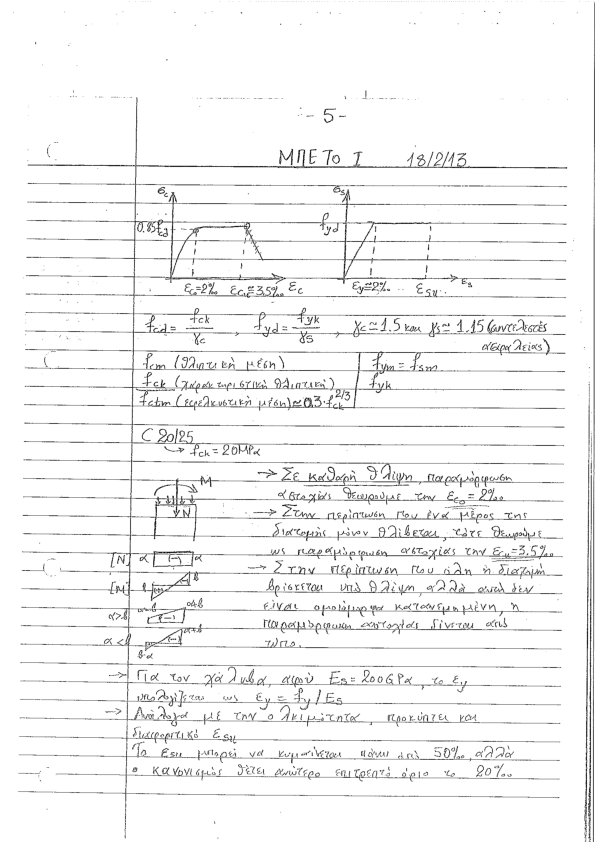 - 5 -
ΜΠΕΤΟ Ι 18/2/13
σc
0.85fcd
εco=2‰ εcu≃3.5‰ εc
σs
fyd
εy≃2‰ εsu εs
fcd = fck/γc , fyd = fyk/γs , γc≃1.5 και γs≃1.15 (συντελεστές
ασφαλείας)
fcm (θλιπτική μέση)
fck (χαρακτηριστική θλιπτική)
fctm (εφελκυστική μέση)≃0.3·fck^2/3
fym = fsm
fyk
C 20/25
→ fck = 20MPa
M
N
→ Σε καθαρή θλίψη, παραμόρφωση
αστοχίας θεωρούμε την εco = 2‰
→ Στην περίπτωση που ένα μέρος της
διατομής μόνον θλίβεται, τότε θεωρούμε
ως παραμόρφωση αστοχίας την εcu=3.5‰
→ Στην περίπτωση που όλη η διατομή
βρίσκεται υπό θλίψη, αλλά αυτή δεν
είναι ομοιόμορφα κατανεμημένη, η
παραμόρφωση αστοχίας δίνεται από
τύπο.
[N] α (-) α
[M] β β
α>β α-β α+β (-)
α<β α+β (-)
β-α
→ Για τον χάλυβα, αφού Es = 200GPa, το εy
υπολογίζεται ως εy = fy/Es
→ Ανάλογα με την ολκιμότητα, προκύπτει και
διαφορετικό εsu
Το εsu μπορεί να κυμαίνεται πάνω από 50‰, αλλά
ο κανονισμός θέτει ανώτερο επιτρεπτό όριο το 20‰